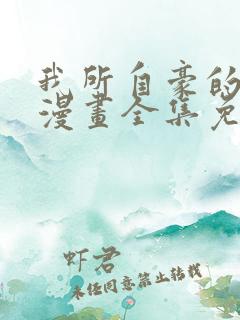 我所自豪的
漫畫全集免
虾君
未经同意禁止转载